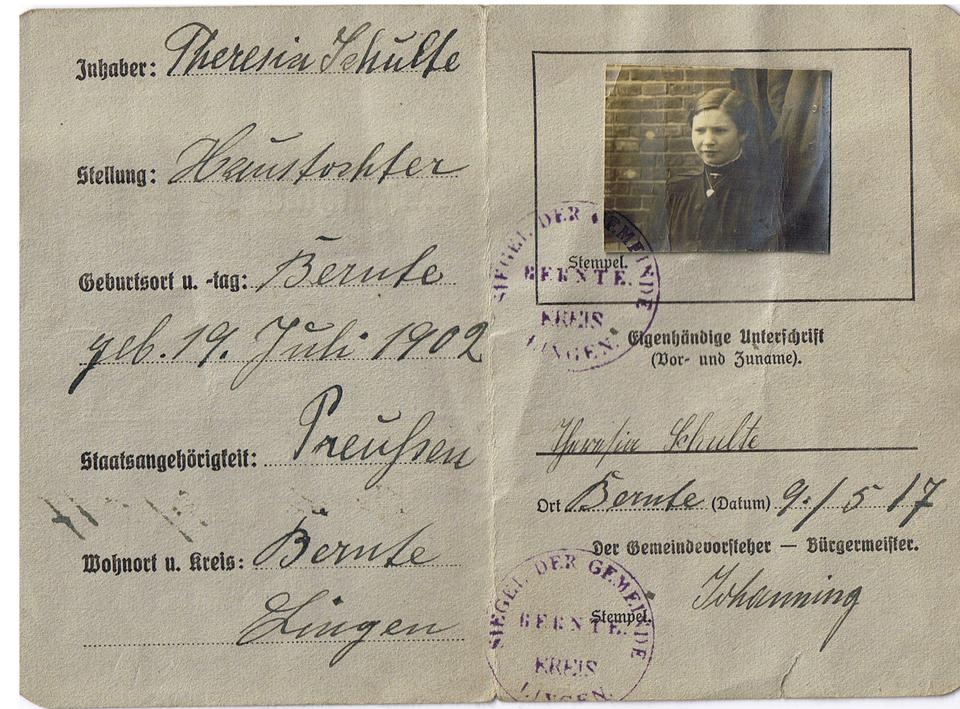 Inhaber: Theresia Schulte
Stellung: Haustochter
Geburtsort u. -tag: Bernte
geb. 19. Juli 1902
Staatsangehörigkeit: Preußen
Wohnort u. Kreis: Bernte
Lingen
SIEGEL DER GEMEINDE
BERNTE.
KREIS
LINGEN.
Stempel.
Eigenhändige Unterschrift
(Vor- und Zuname).
Theresia Schulte
Ort Bernte (Datum) 9./5 17
Der Gemeindevorsteher — Bürgermeister.
Johanning
SIEGEL DER GEMEINDE
BERNTE.
KREIS
LINGEN.
Stempel.